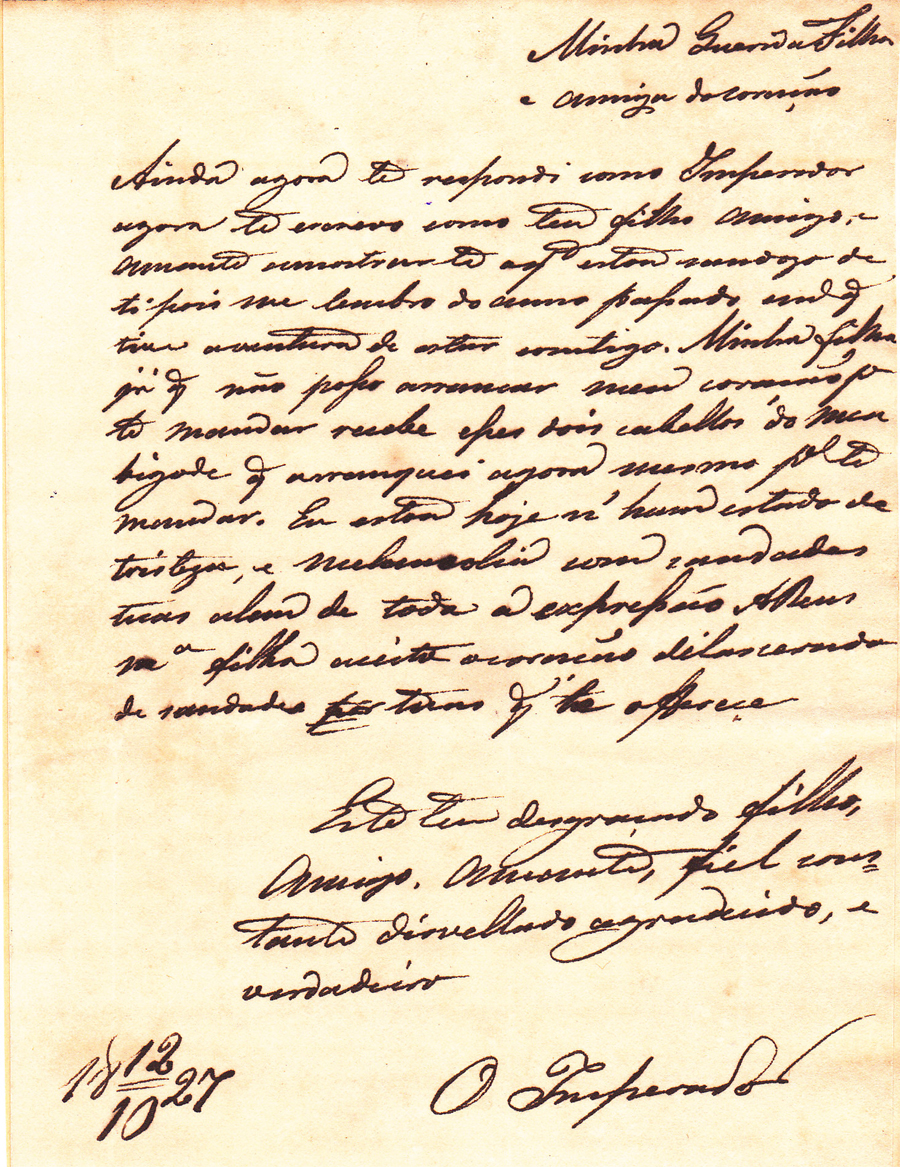 Minha Querida Filha
e amiga do coração
Ainda agora te respondi como Imperador
agora te escrevo como teu filho amigo, e
amante a mostrar te a q.^to estou saudozo de
ti pois me lembro do anno passado em q
tive a ventura de estar comtigo. Minha filha
já q não posso arrancar meu coração p^a
te mandar recebe esses dois cabellos do meu
bigode q arranquei agora mesmo p^a te
mandar. Eu estou hoje n'hum estado de
tristeza, e melancolia com saudades
tuas alem de toda a expressão ADeus
m^a filha aceita o coração dilascerado
de saudades tuas q' te offerece
Este teu desgraçado filho,
Amigo, Amante, fiel cons=
tante disvellado agradecido, e
verdadeiro
18 12/10 27
O Imperador